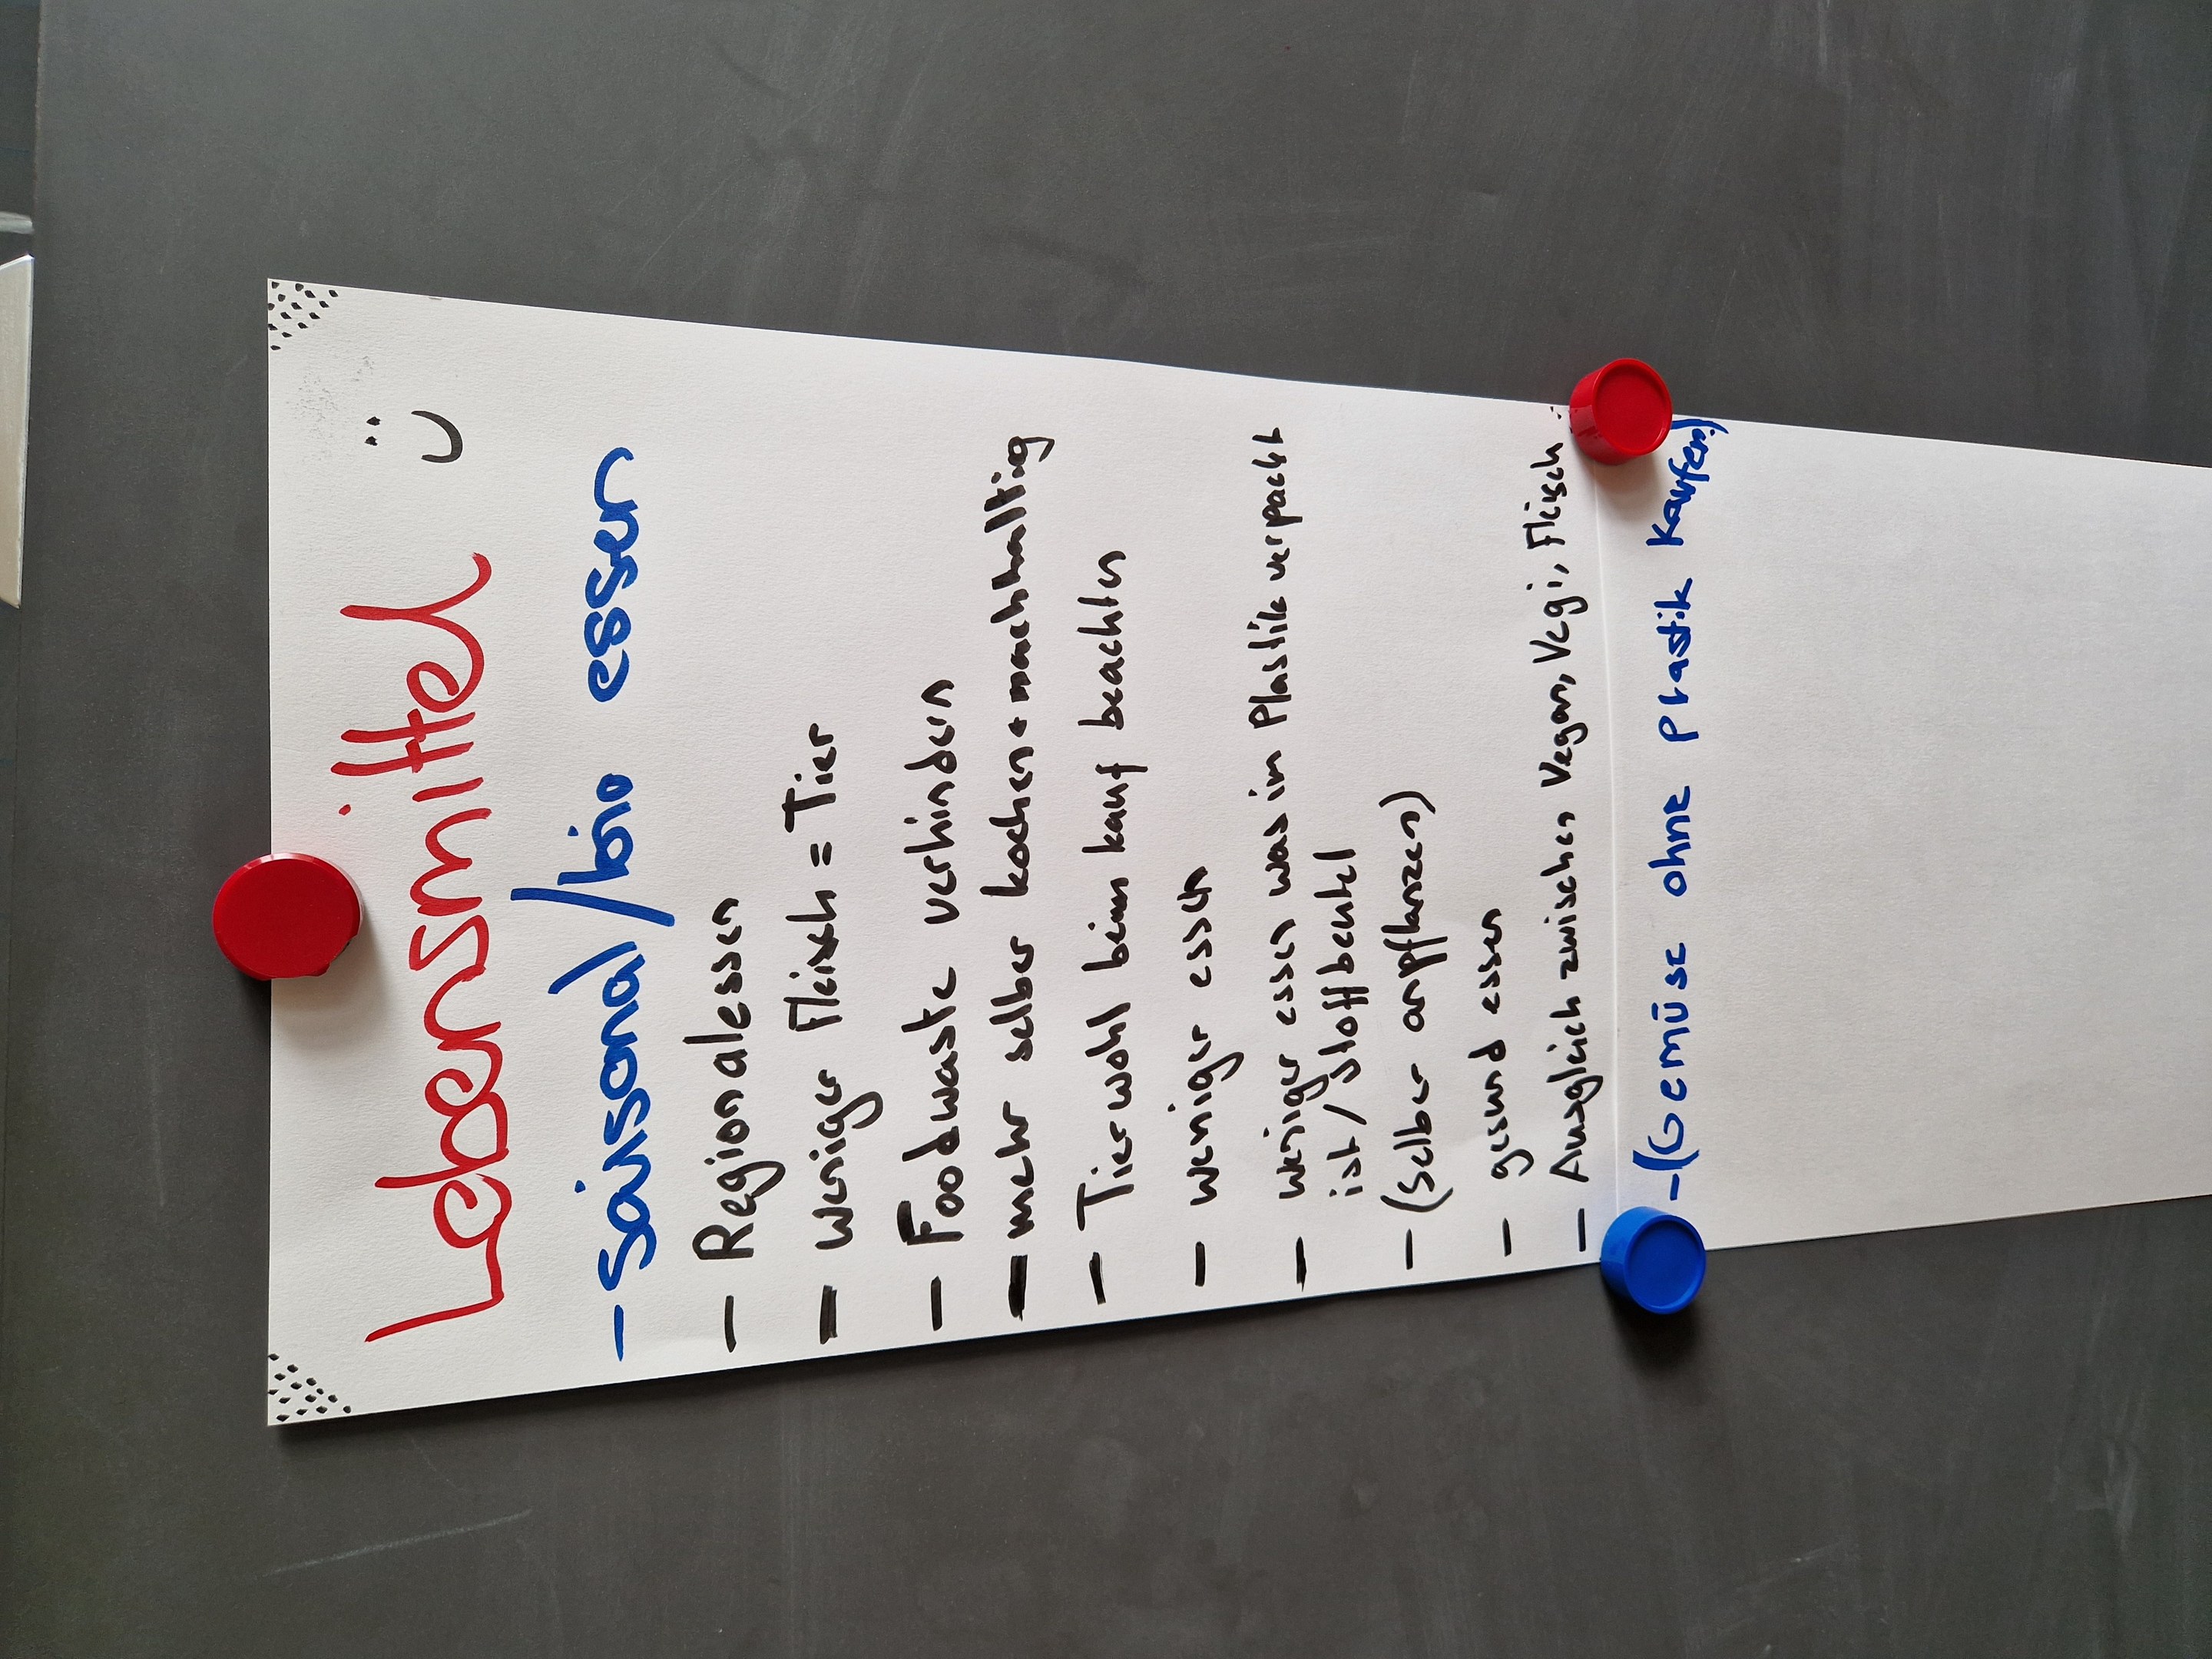 Lebensmittel :)
- saisonal/bio essen
- Regional essen
- weniger Fleisch = Tier
- Foodwaste verhindern
- mehr selber kochen + nachhaltig
- Tierwohl beim kauf beachten
- weniger essen
- weniger essen was in Plastik verpackt
ist / Stoffbeutel
- (Selber anpflanzen)
- gesund essen
- Ausgleich zwischen Vegan, Vegi, Fleisch
- (Gemüse ohne Plastik kaufen)